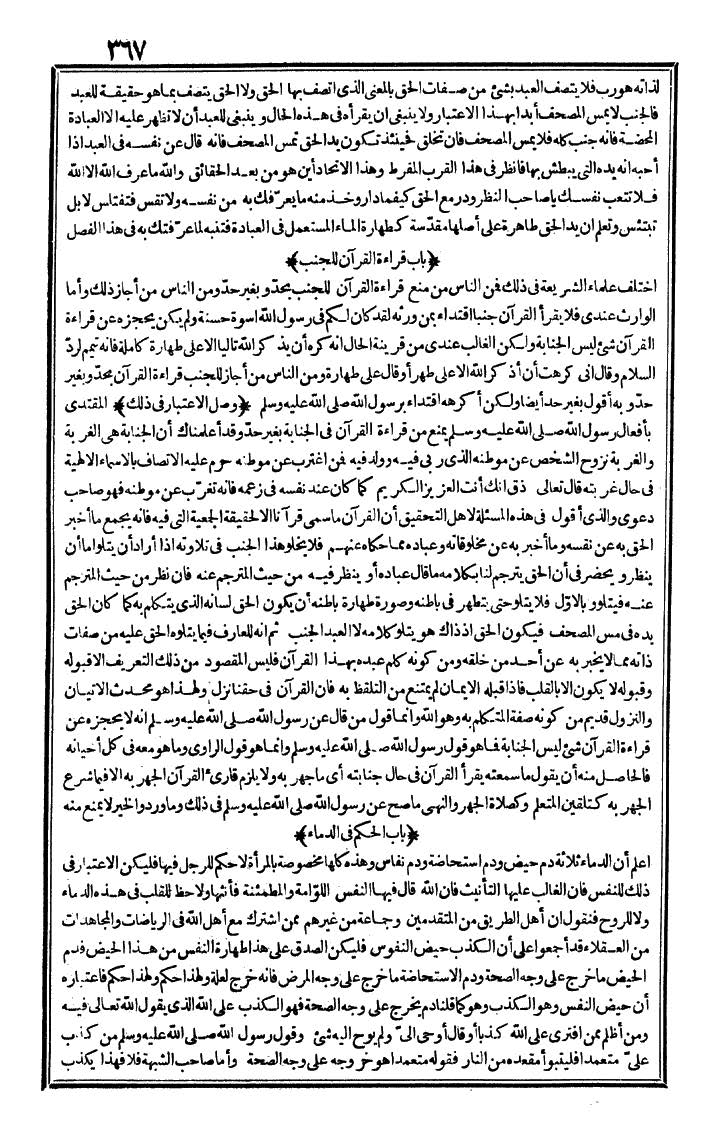 ٣٦٧
لذاته هو رب فلا يتصف العبد بشئ من صفات الحق بالمعنى الذى اتصف بها الحق ولا الحق يتصف بما هو حقيقة للعبد
فالجنب لا يمس المصحف أبدا بهذا الاعتبار ولا ينبغى ان يقرأه فى هذه الحال وينبغى للعبد أن لا تظهر عليه الا العبادة
المحضة فانه جنب كله فلا يمس المصحف فان تخلق فحينئذ تكون يد الحق تمس المصحف فانه قال عن نفسه فى العبد اذا
أحبه انه يده التى يبطش بها فانظر فى هذا القرب المفرط وهذا الاتحاد أين هو من بعد الحقائق والله ما عرف الله الا الله
فلا تتعب نفسك يا صاحب النظر ودر مع الحق كيفما دار وخذ منه ما يعرّفك به من نفسه ولا تقس فتفتلس لا بل
تبتئس وتعلم ان يد الحق طاهرة على أصلها مقدّسة كطهارة الماء المستعمل فى العبادة فتنبه لما عرّفتك به فى هذا الفصل
﴿باب قراءة القرآن للجنب﴾
اختلف علماء الشريعة فى ذلك فمن الناس من منع قراءة القرآن للجنب بحدّ وبغير حدّ ومن الناس من أجاز ذلك وأما
الوارث عندى فلا يقرأ القرآن جنبا اقتداء بمن ورثه لقد كان لكم فى رسول الله اسوة حسنة ولم يكن يحجزه عن قراءة
القرآن شئ ليس الجنابة ولكن الغالب عندى من قرينة الحال انه كره أن يذكر الله تاليا الا على طهارة كاملة فانه تيمم لردّ
السلام وقال انى كرهت أن أذكر الله الا على طهر أو قال على طهارة ومن الناس من أجاز للجنب قراءة القرآن بحدّ وبغير
حدّ وبه أقول بغير حد أيضا ولكن أكرهه اقتداء برسول الله صلى الله عليه وسلم ﴿وصل الاعتبار فى ذلك﴾ المقتدى
بأفعال رسول الله صلى الله عليه وسلم يمنع من قراءة القرآن فى الجنابة بغير حدّ وقد أعلمناك أن الجنابة هى الغربة
والغربة نزوح الشخص عن موطنه الذى ربى فيه وولد فيه فمن اغترب عن موطنه حرم عليه الاتصاف بالاسماء الالهية
فى حال غربته قال تعالى ذق انك أنت العزيز الكريم كما كان عند نفسه فى زعمه فانه تغرّب عن موطنه فهو صاحب
دعوى والذى أقول فى هذه المسئلة لاهل التحقيق أن القرآن ما سمى قرآنا الا لحقيقة الجمعية التى فيه فانه يجمع ما أخبر
الحق به عن نفسه وما أخبر به عن مخلوقاته وعباده مما حكاه عنهم فلا يخلو هذا الجنب فى تلاوته اذا أراد أن يتلو اما أن
ينظر ويحضر فى أن الحق يترجم لنا بكلامه ما قال عباده أو ينظر فيه من حيث المترجم عنه فان نظر من حيث المترجم
عنه فيتلو وبالاوّل فلا يتلو حتى يتطهر فى باطنه وصورة طهارة باطنه أن يكون الحق لسانه الذى يتكلم به كما كان الحق
يده فى مس المصحف فيكون الحق اذ ذاك هو يتلو كلامه لا العبد الجنب ثم انه للعارف فيما يتلوه الحق عليه من صفات
ذاته مما لا يخبر به عن أحد من خلقه ومن كونه كلم عبده بهذا القرآن فليس المقصود من ذلك التعريف الا قبوله
وقبوله لا يكون الا بالقلب فاذا قبله الايمان لم يمتنع من التلفظ به فان القرآن فى حقنا نزل ولهذا هو محدث الاتيان
والنزول قديم من كونه صفة المتكلم به وهو الله وانما قول من قال عن رسول الله صلى الله عليه وسلم انه لا يحجزه عن
قراءة القرآن شئ ليس الجنابة فما هو قول رسول الله صلى الله عليه وسلم وانما هو قول الراوى وما هو معه فى كل أحيانه
فالحاصل منه أن يقول ما سمعته يقرأ القرآن فى حال جنابته أى ما جهر به ولا يلزم قارئ القرآن الجهر به الا فيما شرع
الجهر به كتلقين المتعلم وكصلاة الجهر والنهى ما صح عن رسول الله صلى الله عليه وسلم فى ذلك وما ورد والخير لا يمنع منه
﴿باب الحكم فى الدماء﴾
اعلم أن الدماء ثلاثة دم حيض ودم استحاضة ودم نفاس وهذه كلها مخصوصة بالمرأة لا حكم للرجل فيها فليكن الاعتبار فى
ذلك للنفس فان الغالب عليها التأنيث فان الله قال فيها النفس اللوّامة والمطمئنة فأنثها ولا حظ للقلب فى هذه الدماء
ولا للروح فنقول ان أهل الطريق من المتقدمين وجماعة من غيرهم ممن اشترك مع أهل الله فى الرياضات والمجاهدات
من العقلاء قد أجمعوا على أن الكذب حيض النفوس فليكن الصدق على هذا طهارة النفس من هذا الحيض فدم
الحيض ما خرج على وجه الصحة ودم الاستحاضة ما خرج على وجه المرض فانه خرج لعلة ولهذا حكم ولهذا حكم فاعتباره
أن حيض النفس وهو الكذب وهو كما قلنا دم يخرج على وجه الصحة فهو الكذب على الله الذى يقول الله تعالى فيه
ومن أظلم ممن افترى على الله كذبا أو قال أوحى الىّ ولم يوح اليه شئ وقول رسول الله صلى الله عليه وسلم من كذب
علىّ متعمدا فليتبوأ مقعده من النار فقوله متعمدا هو خروجه على وجه الصحة وأما صاحب الشبهة فلا فهذا يكذب